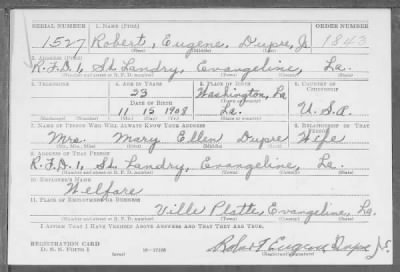 SERIAL NUMBER 1. NAME (Print) ORDER NUMBER
1527 Robert, Eugene, Dupre, Jr 1843
(First) (Middle) (Last)
2. ADDRESS (Print)
R.F.D. 1, St. Landry, Evangeline, La.
(Number and street or R. F. D. number) (Town) (County) (State)
3. TELEPHONE 4. AGE IN YEARS 5. PLACE OF BIRTH 6. COUNTRY OF CITIZENSHIP
33 Washington, La
DATE OF BIRTH (Town or county)
11 15 1908 La. U.S.A.
(Exchange) (Number) (Mo.) (Day) (Yr.) (State or country)
7. NAME OF PERSON WHO WILL ALWAYS KNOW YOUR ADDRESS 8. RELATIONSHIP OF THAT PERSON
Mrs. Mary Ellen Dupre Wife
(Mr., Mrs., Miss) (First) (Middle) (Last)
9. ADDRESS OF THAT PERSON
R.F.D. 1, St. Landry, Evangeline, La.
(Number and street or R. F. D. number) (Town) (County) (State)
10. EMPLOYER'S NAME
Welfare
11. PLACE OF EMPLOYMENT OR BUSINESS
Ville Platte, Evangeline, La.
(Number and street or R. F. D. number) (Town) (County) (State)
I AFFIRM THAT I HAVE VERIFIED ABOVE ANSWERS AND THAT THEY ARE TRUE.
REGISTRATION CARD
D. S. S. Form 1 16—17105 Robert Eugene Dupre Jr.
(over) (Registrant's signature)